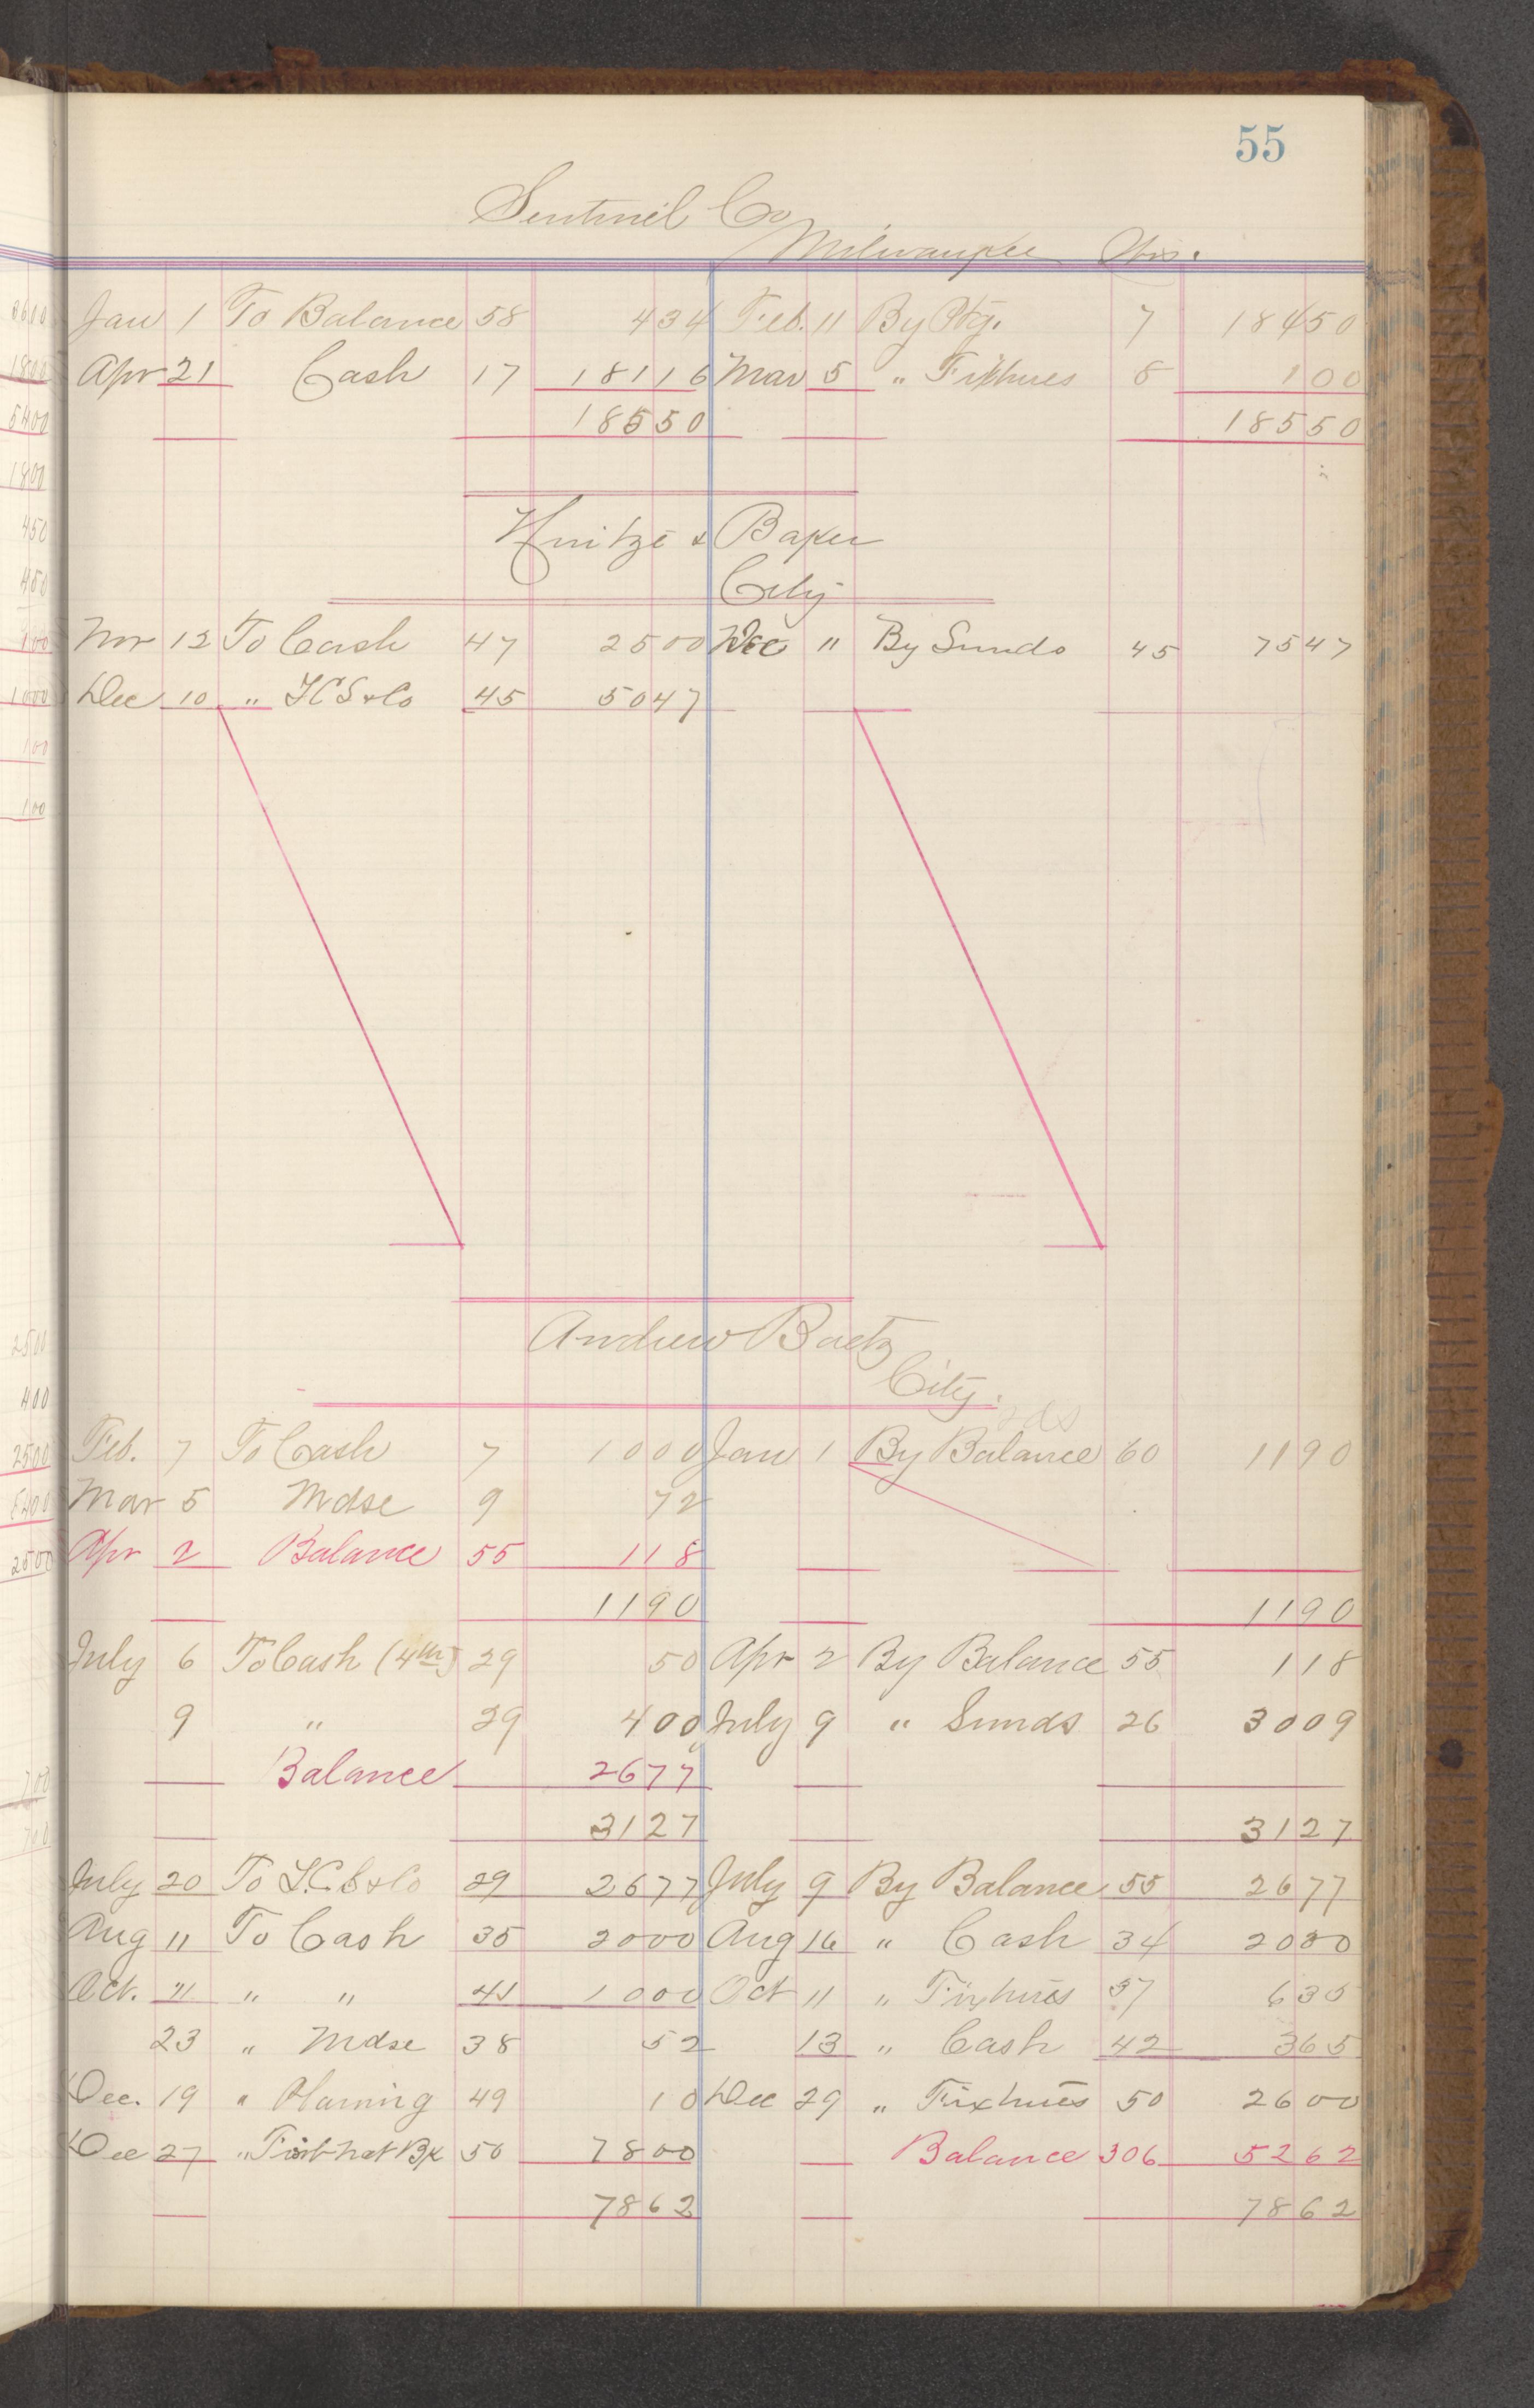 55
Sentinel Co
Milwaukee Wis.
Jan 1 To Balance 58 434 Feb. 11 By Ptg. 7 18450
Apr 21 Cash 17 18116 Mar 5 " Fixtures 8 100
18550 18550
& Baker
City
Nov 12 To Cash 47 2500 Dec 11 By Sunds 45 7547
Dec 10 " & Co 45 5047
Andrew Baetz
City.
Feb. 7 To Cash 7 1000 Jan 1 By Balance 60 1190
Mar 5 Mdse 9 72
Apr 2 Balance 55 118
1190 1190
July 6 To Cash (4th) 29 50 Apr 2 By Balance 55 118
9 " 29 400 July 9 " Sunds 26 3009
Balance 2677
3127 3127
July 20 To & Co 29 2677 July 9 By Balance 55 2677
Aug 11 To Cash 35 2000 Aug 16 " Cash 34 2000
Oct. 11 " " 41 1000 Oct 11 " Fixtures 37 635
23 " Mdse 38 52 13 " Cash 42 365
Dec. 19 " Planing 49 10 Dec 29 " Fixtures 50 2600
Dec 27 " First Nat Bk 50 7800 Balance 306 5262
7862 7862
3600
1800
5400
1800
450
450
100
1000
100
100
2500
400
2500
5400
2500
700
700